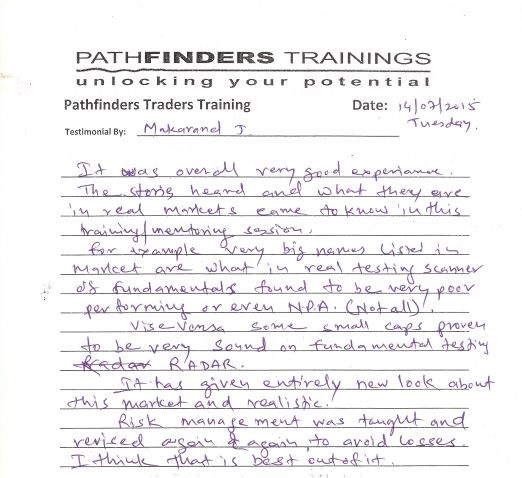 PATHFINDERS TRAININGS
unlocking your potential
Pathfinders Traders Training Date: 14/07/2015
Testimonial By: Makarand J. Tuesday.
It was overall very good experiance.
The storis heard and what they are
in real markets came to know in this
training/mentoring session.
For example very big names listed in
market are what in real testing scanner
of fundamentals found to be very poor
performing or even N.P.A. (Not all).
Vise Versa some small caps proven
to be very sound on fundamental testing
Radar RADAR.
It has given entirely new look about
this market and realistic.
Risk management was taught and
revised again & again, to avoid losses.
I think that is best out of it.